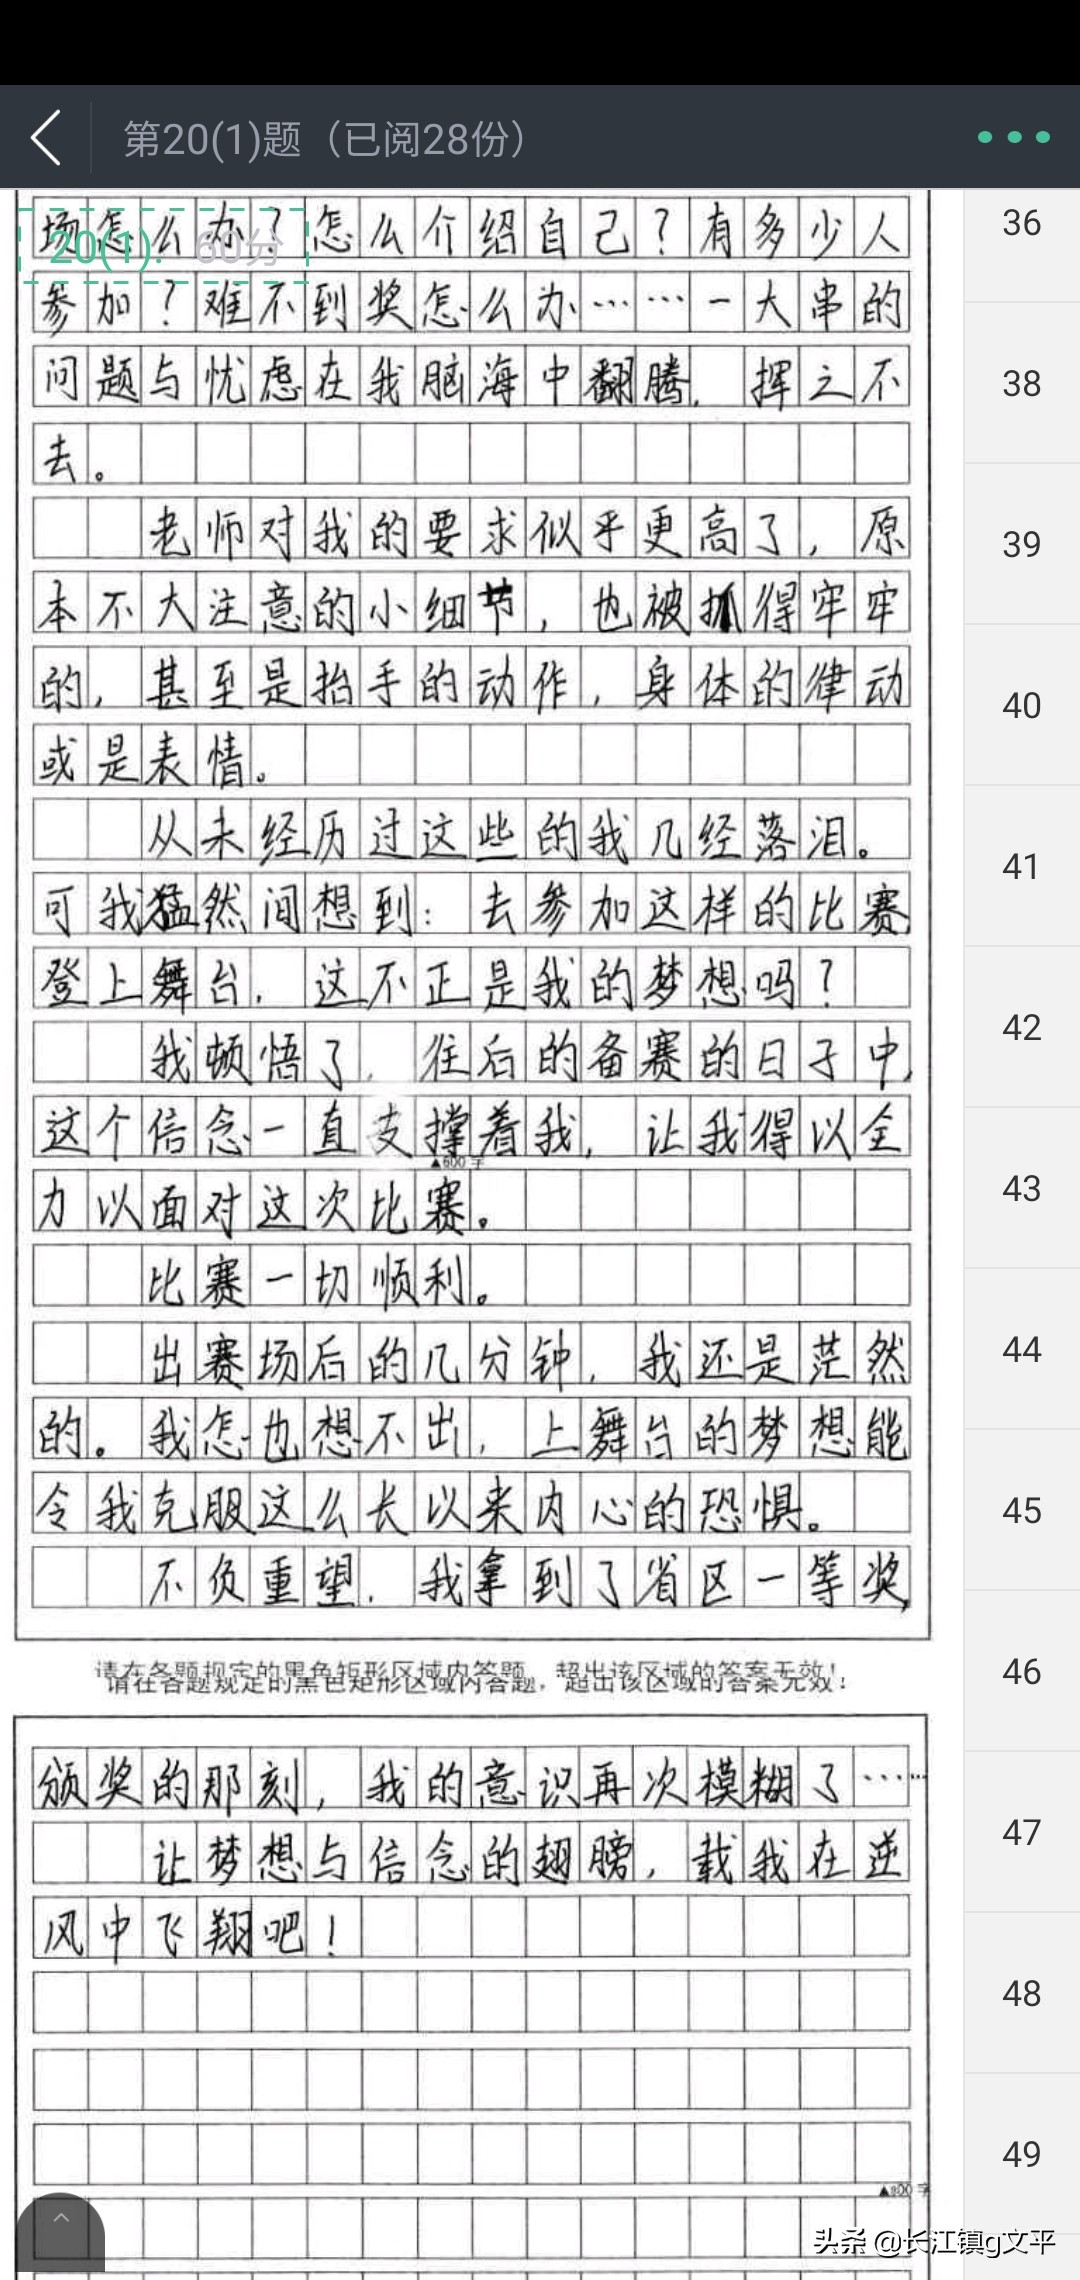 第20(1)题（已阅28份）
20(1). 60分
场怎么办？怎么介绍自己？有多少人
参加？难不到奖怎么办……一大串的
问题与忧虑在我脑海中翻腾，挥之不
去。
老师对我的要求似乎更高了，原
本不大注意的小细节，也被抓得牢牢
的，甚至是抬手的动作，身体的律动
或是表情。
从未经历过这些的我几经落泪。
可我猛然间想到：去参加这样的比赛，
登上舞台，这不正是我的梦想吗？
我顿悟了，往后的备赛的日子中，
这个信念一直支撑着我，让我得以全
▲600字
力以面对这次比赛。
比赛一切顺利。
出赛场后的几分钟，我还是茫然
的。我怎也想不出，上舞台的梦想能
令我克服这么长以来内心的恐惧。
不负重望，我拿到了省区一等奖，
请在各题规定的黑色矩形区域内答题，超出该区域的答案无效！
请在各题规定的黑色矩形区域内答题，超出该区域的答案无效！
颁奖的那刻，我的意识再次模糊了……
让梦想与信念的翅膀，载我在逆
风中飞翔吧！
▲800字
36
38
39
40
41
42
43
44
45
46
47
48
49
头条 @长江镇g文平